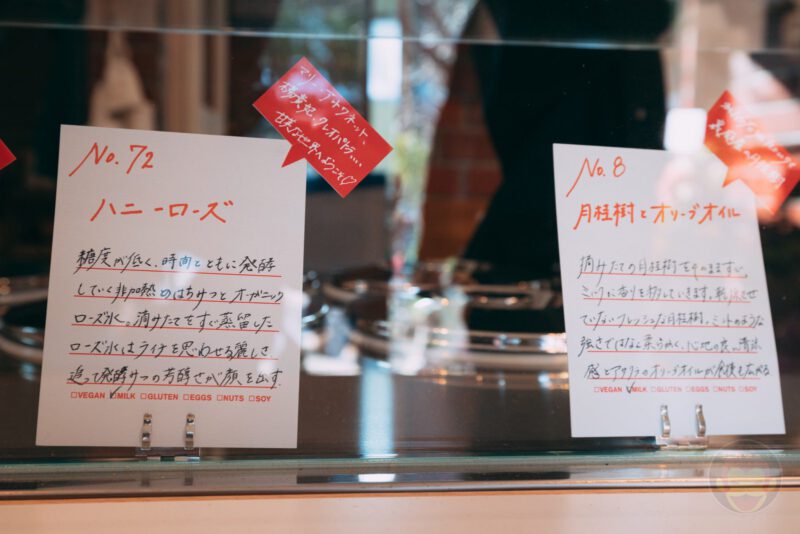 マリーアントワネット、
楊貴妃、クレオパトラ…
甘美な世界へようこそ♡
No.72
ハニーローズ
糖度が低く、時間とともに発酵
していく非加熱のはちみつとオーガニック
ローズ水。摘みたてをすぐ蒸留した
ローズ水はライチを思わせる麗しさ
追って発酵みつの芳醇さが顔を出す
□VEGAN ☑MILK □GLUTEN □EGGS □NUTS □SOY
No.8
月桂樹とオリーブオイル
摘みたての月桂樹をそのまますぐに
ミルクに香りを移していきます。乾燥させ
ていないフレッシュな月桂樹。ミントのような
強さではなく柔らかく、心地の良い清涼
感と
のオリーブオイルが余韻も広がる
□VEGAN ☑MILK □GLUTEN □EGGS □NUTS □SOY